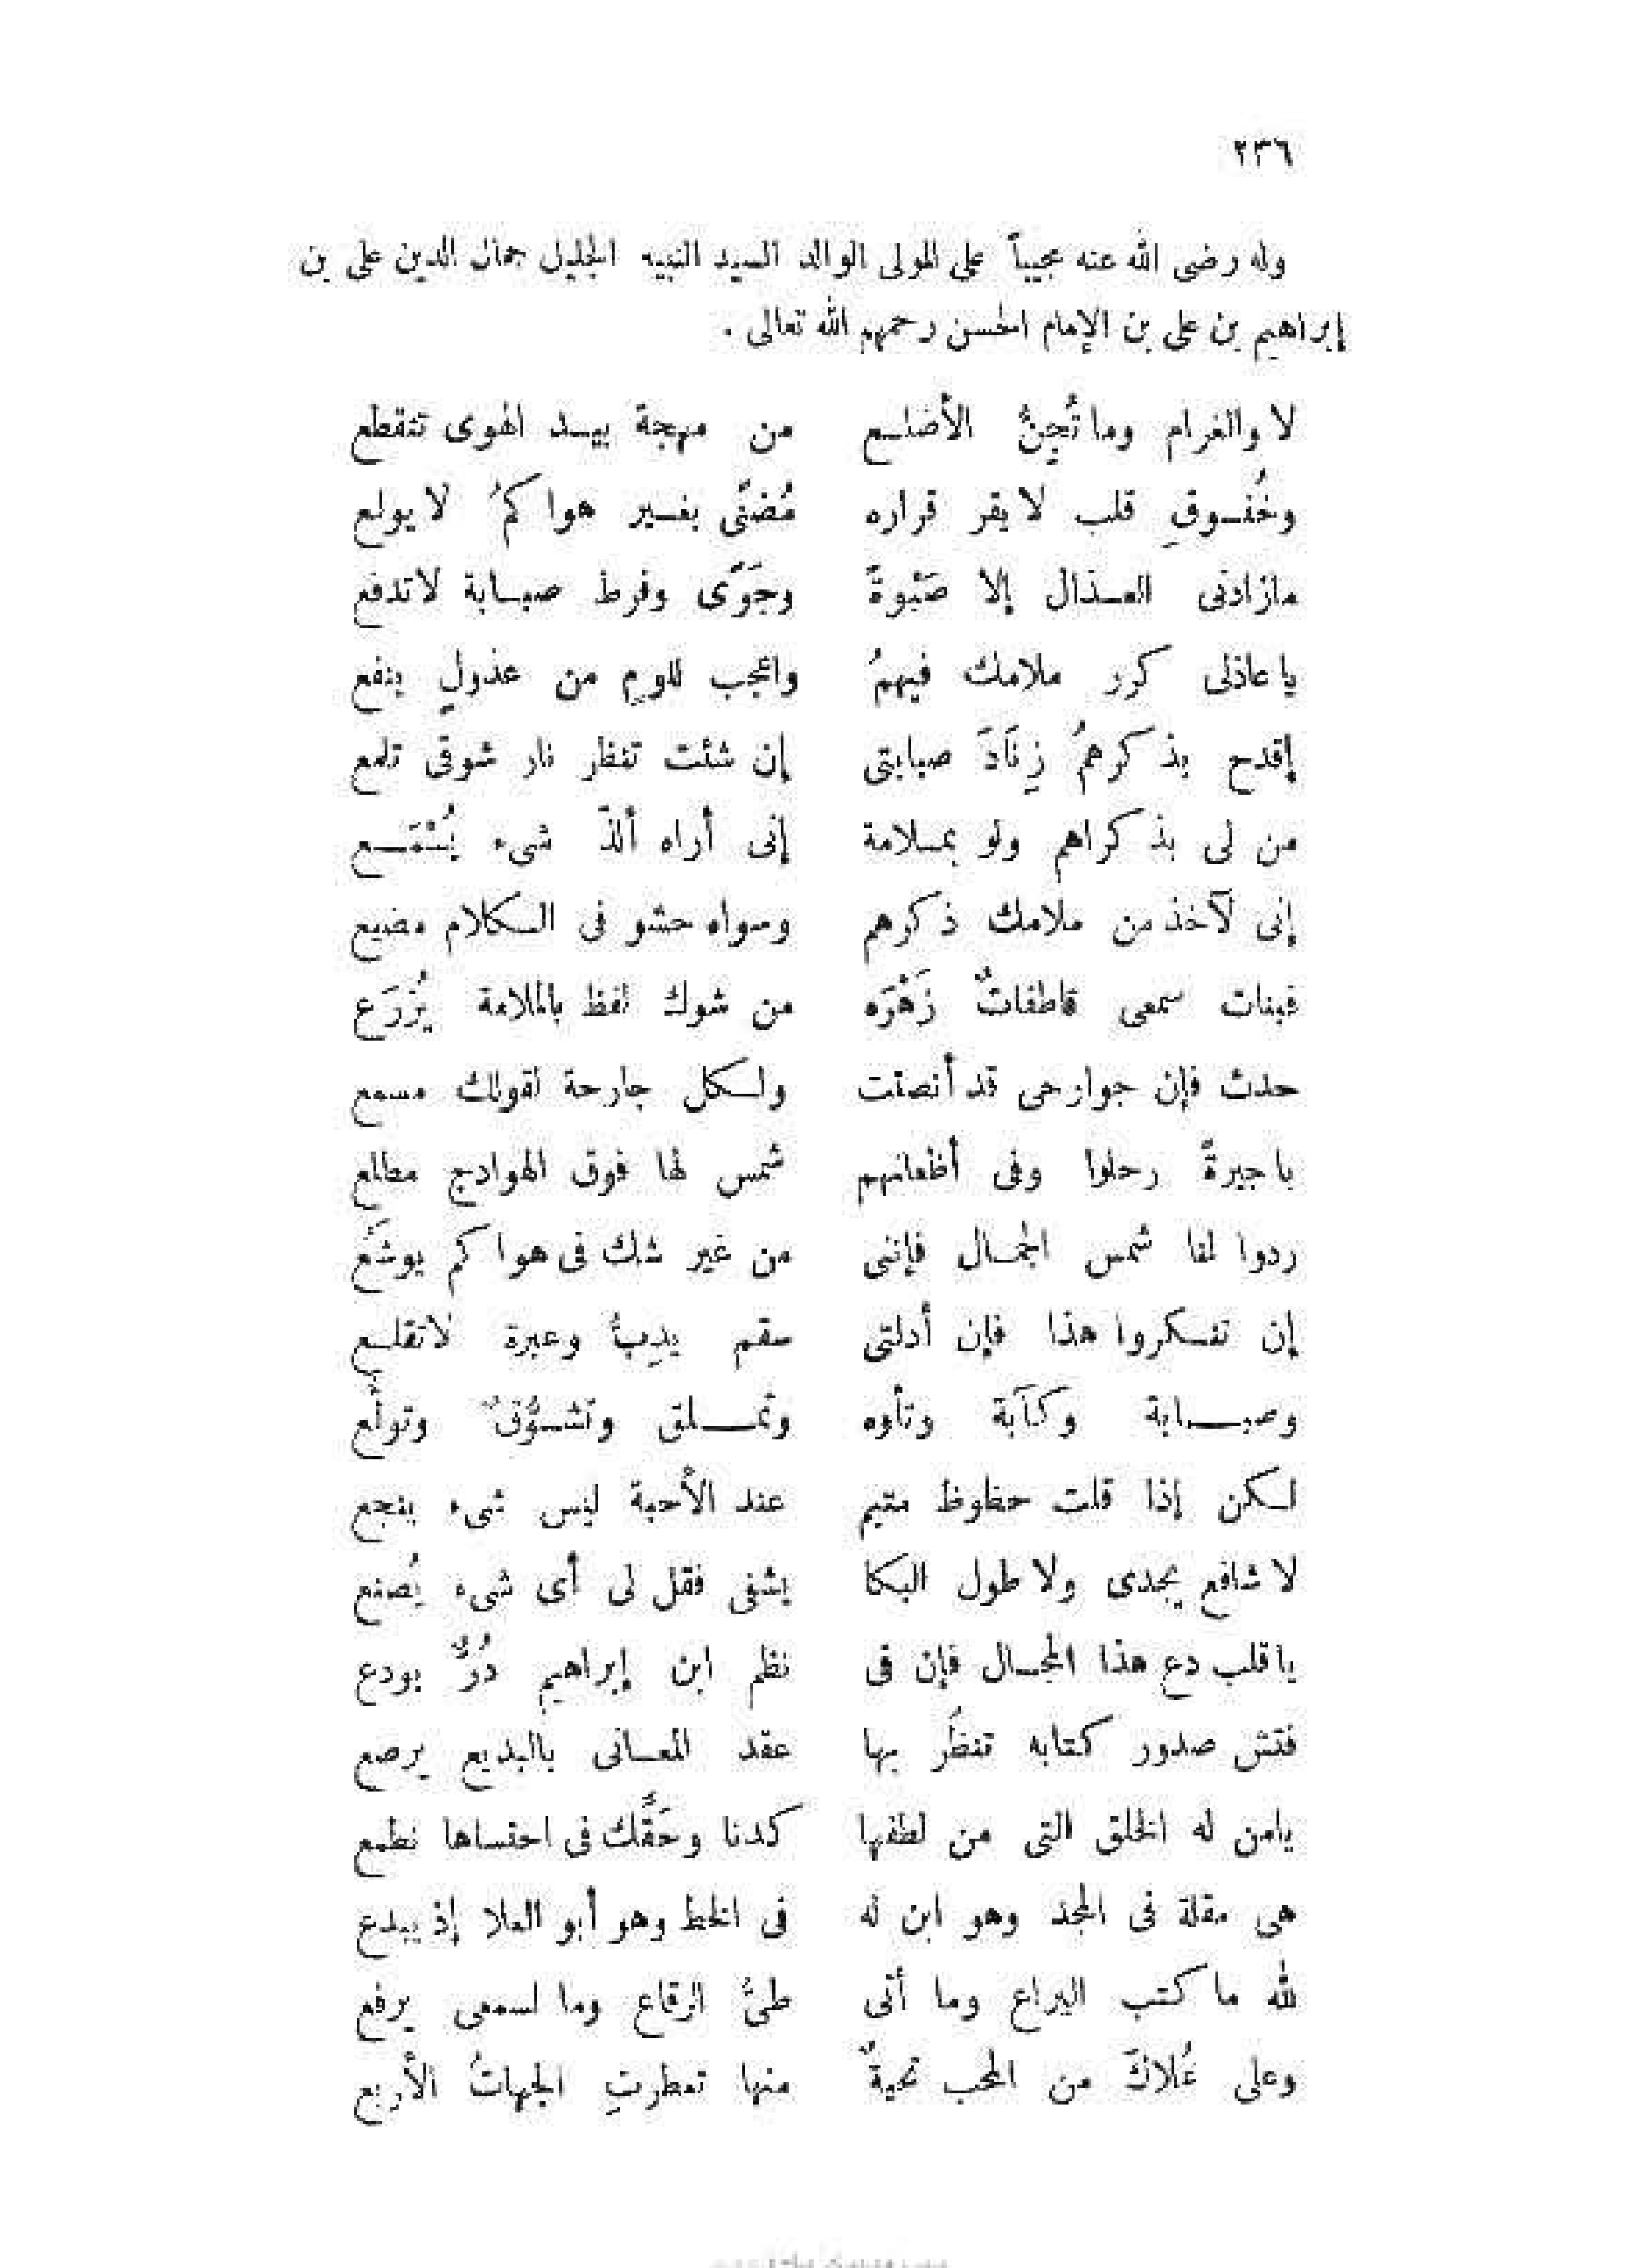 ٢٣٦
وله رضى الله عنه مجيباً على المولى الوالد السيد النبيه الجليل جمال الدين على بن
إبراهيم بن على بن الإمام الحسن رحمهم الله تعالى .
لا والغرام وما تُجِنُّ الأضلـع من مهجة بيـد الهوى تتقطع
وخُفـوقِ قلب لا يقر قراره مُضنًى بغـير هواكمُ لا يولع
مازادنى العـذال إلا صَبْوةً وجَوًى وفرط صبـابة لاتدفع
يا عاذلى كرر ملامك فيهمُ واعجب للومٍ من عذولٍ ينفع
إقدح بذكرهمُ زِنَادَ صبابتى إن شئت تنظر نار شوقى تلمع
من لى بذكراهم ولو بمـلامة إنى أراه ألذّ شىء يُسْمَـع
إنى لآخذ من ملامك ذكرهم وسواه حشو فى الـكلام مضيع
فبنات سمعى قاطفاتٌ زَهْرَه من شوك لفظ بالملامة يُزْرَع
حدث فإن جوارحى قد أنصتت ولـكل جارحة لقولك مسمع
يا جيرةً رحلوا وفى أظعانهم شمس لها فوق الهوادج مطلع
ردوا لنا شمس الجمـال فإننى من غير شك فى هواكم يوشَع
إن تنـكروا هذا فإن أدلتى سقم يدِبُّ وعبرة لاتقلـع
وصبـابة وكآبة وتأوه وتمـلق وتشـوُّقٌ وتولُّع
لـكن إذا قلت حظوظ متيم عند الأحبة ليس شىء ينجع
لا شافع يجدى ولا طول البكا يشفى فقل لى أى شىء يُصنع
يا قلب دع هذا المجـال فإن فى نظم ابن إبراهيم دُرٌّ يودع
فتش صدور كتابه تنظُر بها عقد المعـانى بالبديع يرصع
يامن له الخلق التى من لطفها كدنا وحَقِّك فى احتساها نطمع
هى مقلة فى المجد وهو ابن له فى الخط وهو أبو العلا إذ يبدع
لله ما كتب اليراع وما أتى طىَّ الرقاع وما لسمعى يرفع
وعلى عُلاكَ من المحب تحيةٌ منها تعطرتِ الجهاتُ الأربع